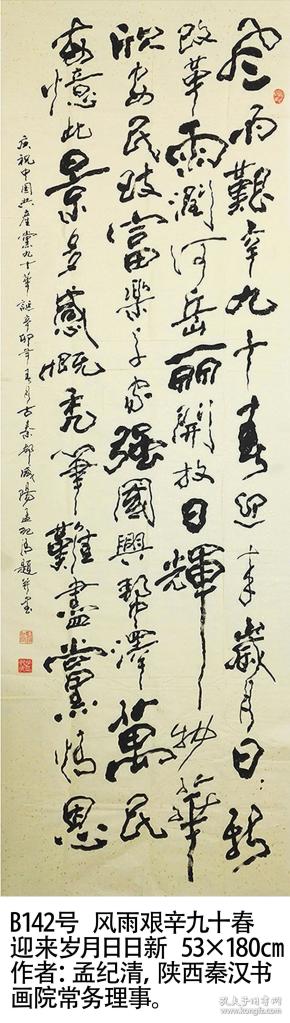 风雨艱辛九十春迎来歲月日:新
改革雨潤河岳麗開放日輝物華
欣安民致富樂千家强國興邦澤萬民
每憶此景多感慨秃筆難盡黨情恩
庆祝中国共產黨九十華誕辛卯年春月古秦都咸陽孟纪清题并書
B142号 风雨艰辛九十春
迎来岁月日日新 53×180cm
作者：孟纪清，陕西秦汉书
画院常务理事。
孔夫子旧书网